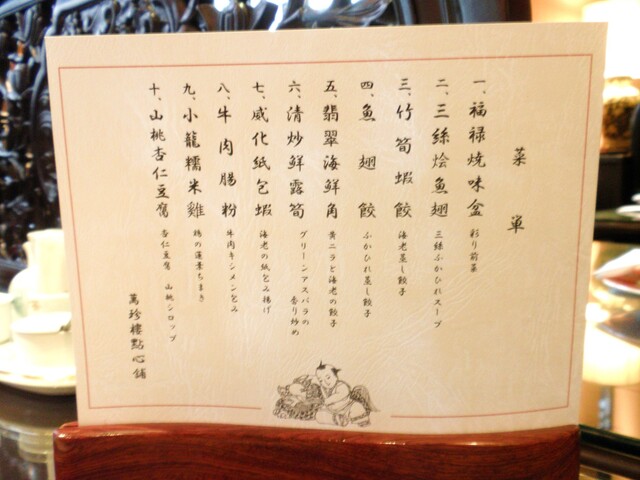 菜单
一、福禄焼味盆 彩り前菜
二、三絲烩魚翅 三絲ふかひれスープ
三、竹筍蝦餃 海老蒸し餃子
四、魚翅餃 ふかひれ蒸し餃子
五、翡翠海鮮角 黄ニラと海老の餃子
六、清炒鮮露筍 グリーンアスパラの香り炒め
七、威化紙包蝦 海老の紙包み揚げ
八、牛肉腸粉 牛肉キシメン包み
九、小籠糯米雞 鶏の蓮葉ちまき
十、山桃杏仁豆腐 杏仁豆腐 山桃シロップ
萬珍樓點心舖